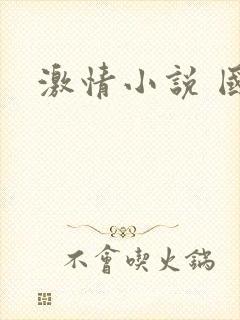 激情小說
不會喫火鍋